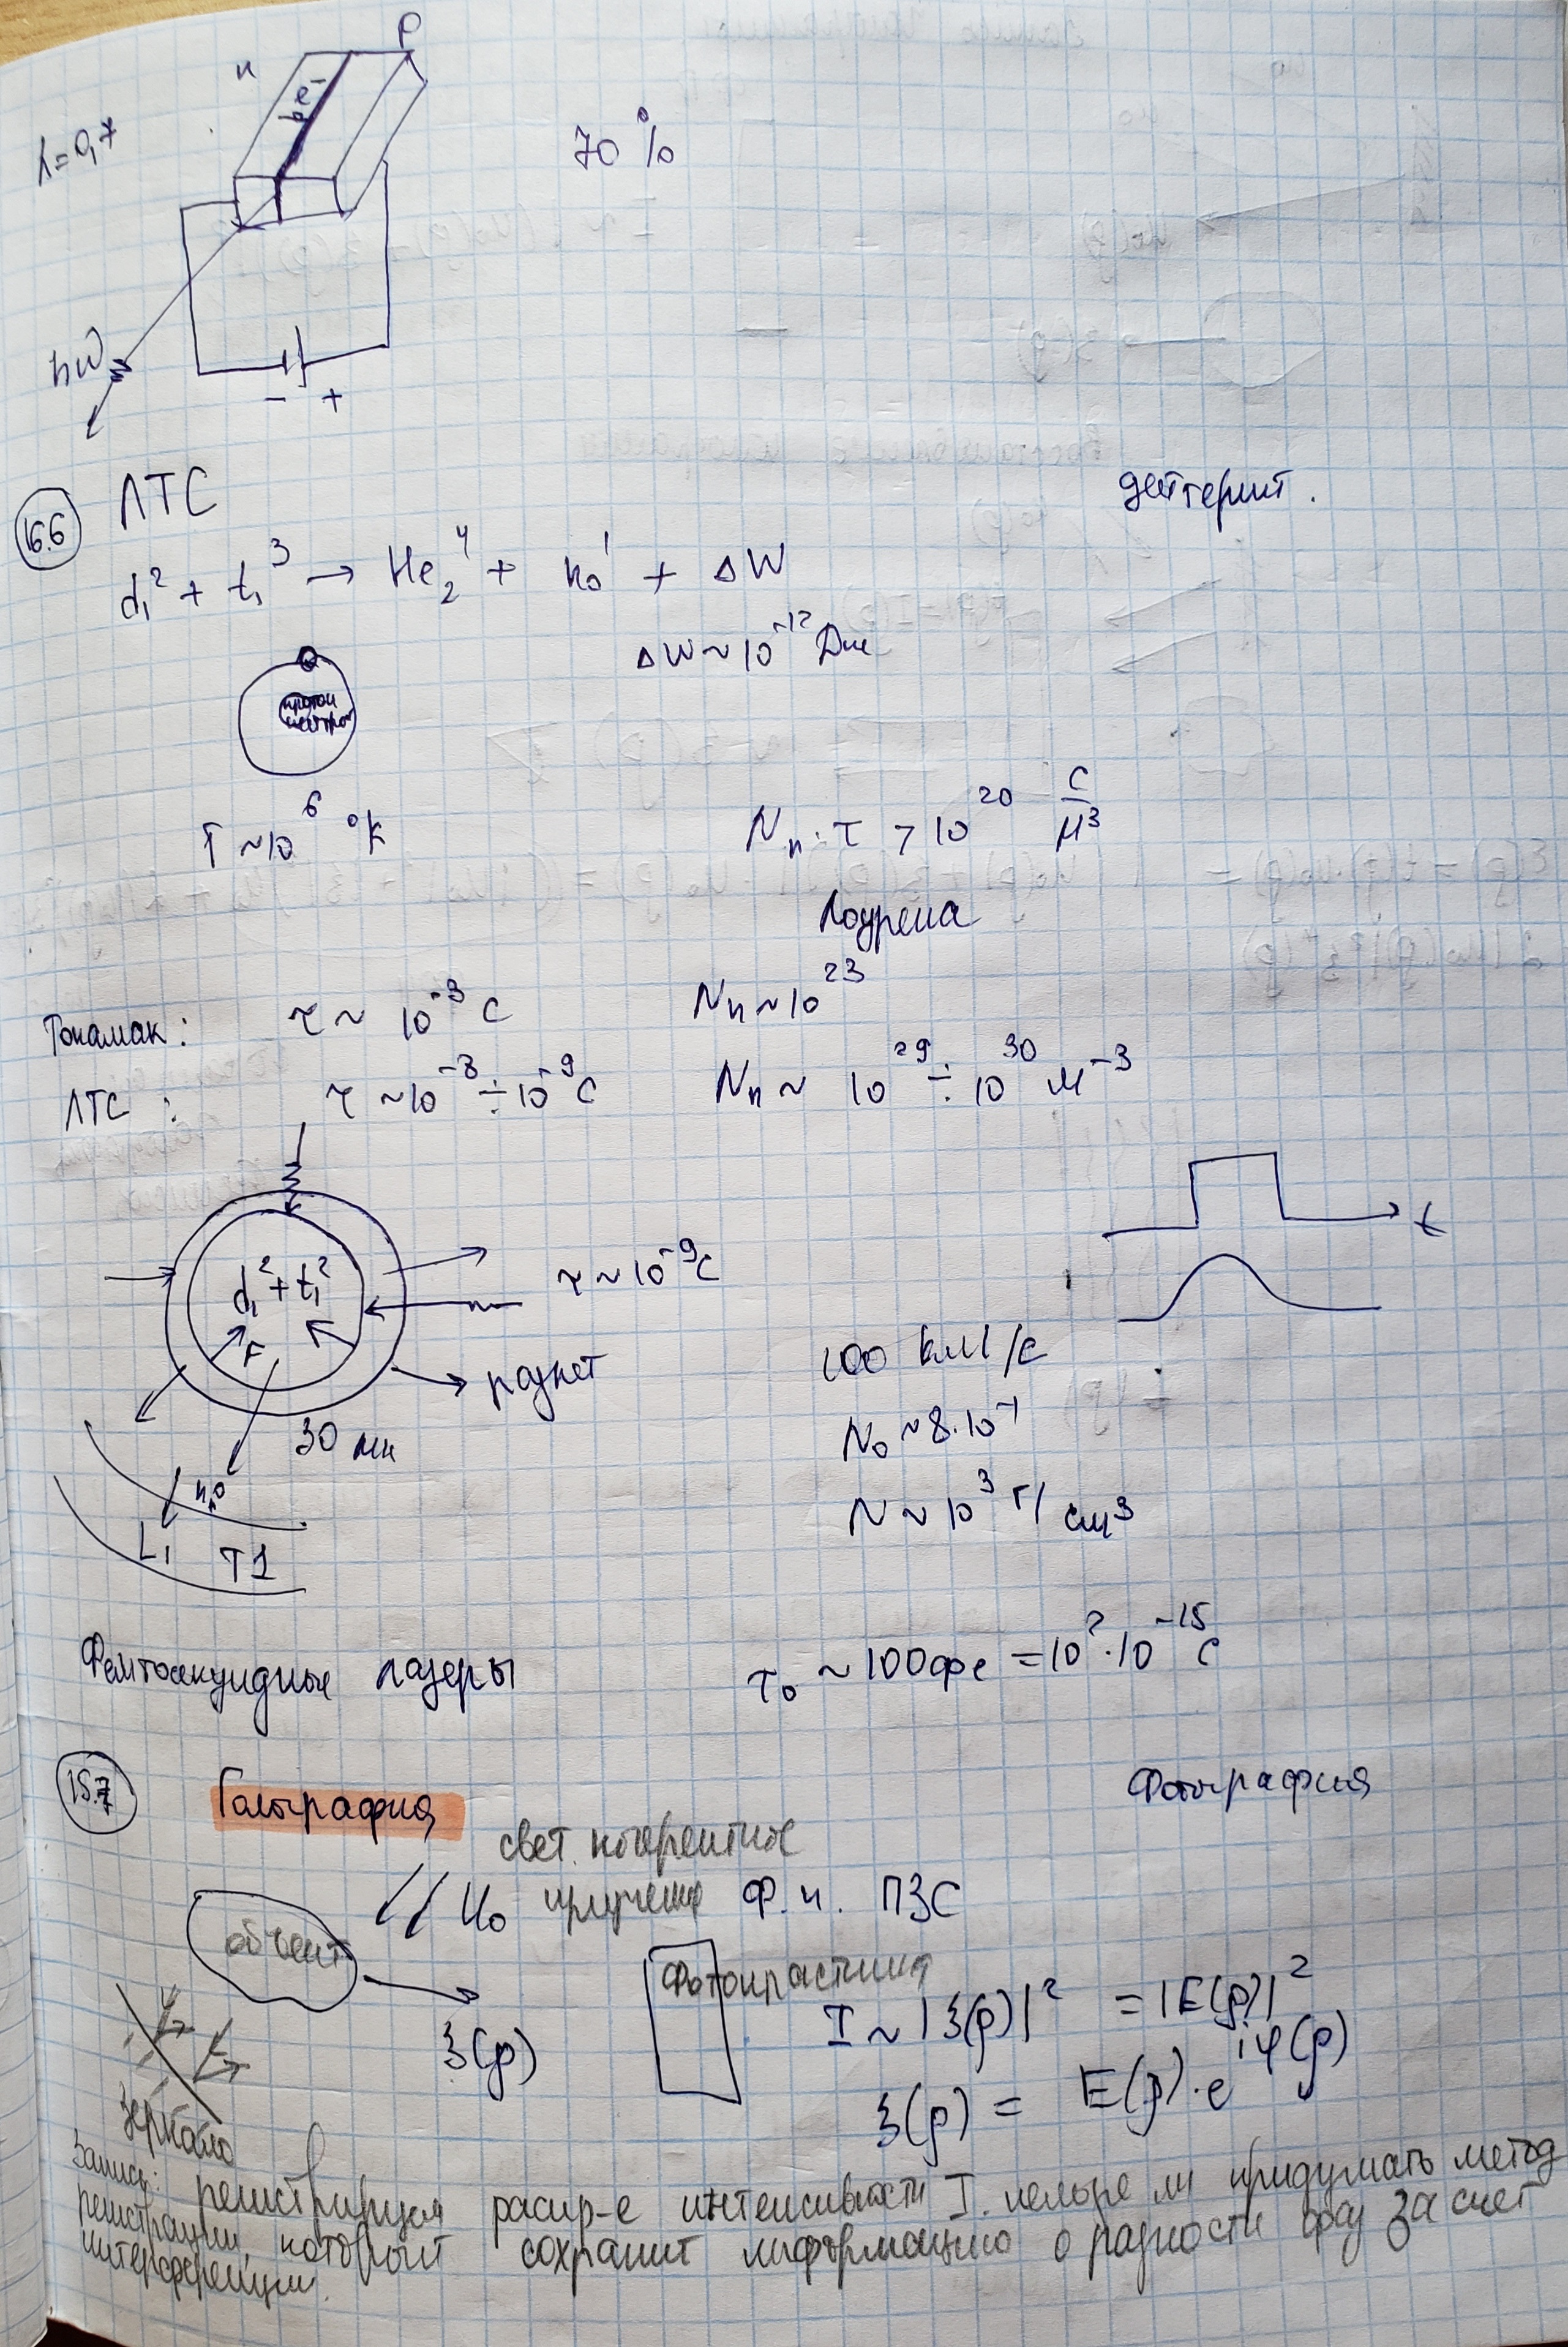 n P
λ=0,7
70 %
ħω
- +
16.6 ЛТС
дейтерит.
d₁² + t₁³ → He₂⁴ + n₀¹ + ΔW
ΔW ~ 10⁻¹² Дж
протон
нейтрон
T ~ 10⁶ °K
Nₙ · τ > 10²⁰ с/м³
Лоурена
Токамак: τ ~ 10⁻³ с Nₙ ~ 10²³
ЛТС: τ ~ 10⁻⁸ ÷ 10⁻⁹ с Nₙ ~ 10²⁹ ÷ 10³⁰ м⁻³
t
d₁² + t₁²
τ ~ 10⁻⁹ с
F
разлет
100 км/с
30 мк
N₀ ~ 8·10⁻¹
N ~ 10³ г/см³
L₁ T1
Фемтосекундные лазеры τ₀ ~ 100фс = 10²·10⁻¹⁵ с
15.7 Голография Фотография
свет. когерентное
U₀ излучение Ф.и. ПЗС
объект
Фотопластина
ξ(ρ)
I ~ |ξ(ρ)|² = |E(ρ)|²
ξ(ρ) = E(ρ)·e^{iφ(ρ)}
зеркало
Запись: регистрируем распр-е интенсивности I. нельзя ли придумать метод
регистрации, который сохранит информацию о разности фаз за счет
интерференции.